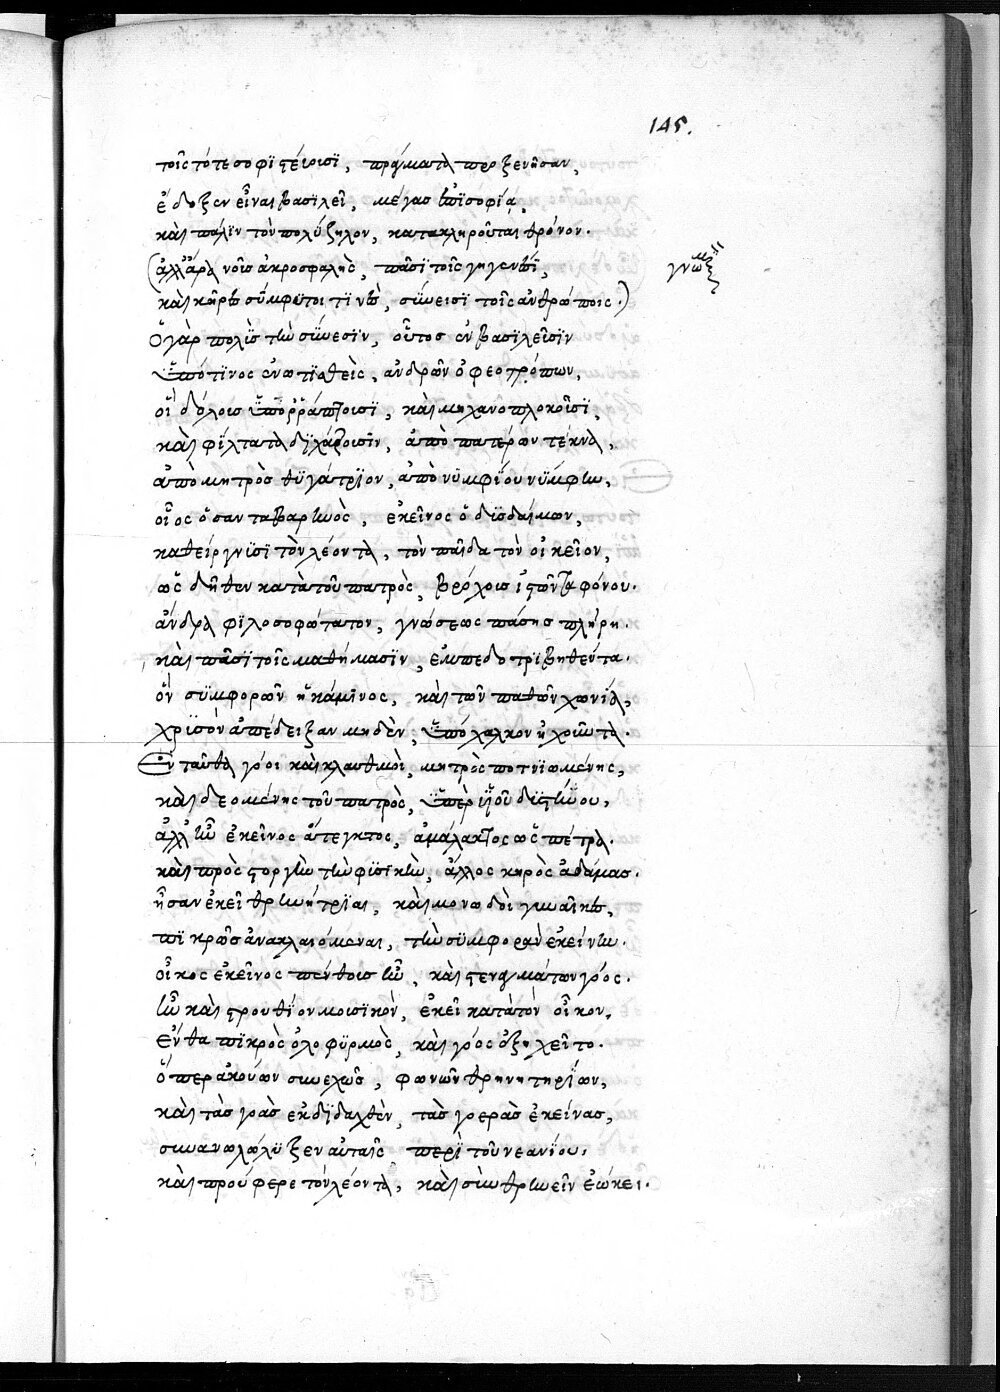 145.
τοῖς τότε σοφϊστεύουσϊ, πράγματα προξενήσαν,
ἔδοξεν εἶναι βασϊλεῖ, μέγας ἐπϊσοφία,
καὶ πάλϊν τὸν πολύζηλον, κατακληροῦται θρόνον.
(ἀλλ' ἆρα νοῦς ἀκροσφαλὴς, πᾶσϊ τοῖς γηγενέσϊ,
γνωμη
καὶ κῆρες σύμφϋτοι τϊνὲς, σύνεισϊ τοῖς ἀνθρώποις.)
Ὁ γὰρ πολὺς τὴν σύνεσϊν, οὗτος ἐν βασϊλεῦσϊν
ὑπό τϊνος ἐνωτϊσθεὶς, ἀνδρῶν ὀφεοτρόπων,
οἳ δόλους ὑπορράπτουσϊ, καὶ μηχανοπλοκοῦσϊ,
καὶ φίλτατα δϊχάζουσϊν, ἀπὸ πατέρων τέκνα,
ἀπὸ μητρὸς θϋγάτρϊον, ἀπὸ νϋμφΐου νύμφην,
οἷος ὁ σανταβαρηνὸς, ἐκεῖνος ὁ δϋσδαίμων,
καθείργνϋσϊ τὸν λέοντα, τὸν παῖδα τὸν οἰκεῖον,
ὡς δῆθεν κατὰ τοῦ πατρὸς, βρόχους ἱστῶντα φόνου.
ἄνδρα φϊλοσοφώτατον, γνώσεως πάσης πλήρη.
καὶ πᾶσϊ τοῖς μαθήμασϊν, ἐμπεδοτρϊβηθέντα.
ὃν σϋμφορῶν ἡ κάμϊνος, καὶ τῶν παθῶν χωνεία,
χρϋσὸν ἀπέδειξαν μηδὲν, ὑπόχαλκον ἠχοῦντα.
Ἐνταῦθα γόοι καὶ κλαυθμοὶ, μητρὸς ποτνϊωμένης,
καὶ δεομένης τοῦ πατρὸς, ὑπὲρ υἱοῦ δϋστήνου,
ἀλλ' ἦν ἐκεῖνος ἄτεγκτος, ἀμάλακτος ὡς πέτρα.
καὶ πρὸς στοργὴν τὴν φϋσϊκὴν, ἄλλος κηρὸς ἀδάμας.
ἦσαν ἐκεῖ θρηνήτρϊαι, καὶ μονωδοὶ γυναῖκες,
πϊκρῶς ἀνακλαιόμεναι, τὴν σϋμφορὰν ἐκείνην.
οἶκος ἐκεῖνος πένθους ἦν, καὶ στεναγμάτων γόος.
ἦν καὶ στρουθΐον μουσϊκὸν, ἐκεῖ κατὰ τὸν οἶκον,
ἔνθα πϊκρὸς ὀλοφϋρμὸς, καὶ γόος ὀξυχεῖτο.
ὅπερ ἀκούων συνεχῶς, φωνῶν θρηνητηρΐων,
καὶ τὰς γοὰς ἐκδϊδαχθὲν, τὰς γοερὰς ἐκείνας,
συνανωλόλϋξεν αὐταῖς περὶ τοῦ νεανΐου,
καὶ προύφερε τὸν λέοντα, καὶ συνθρηνεῖν ἐώκει.